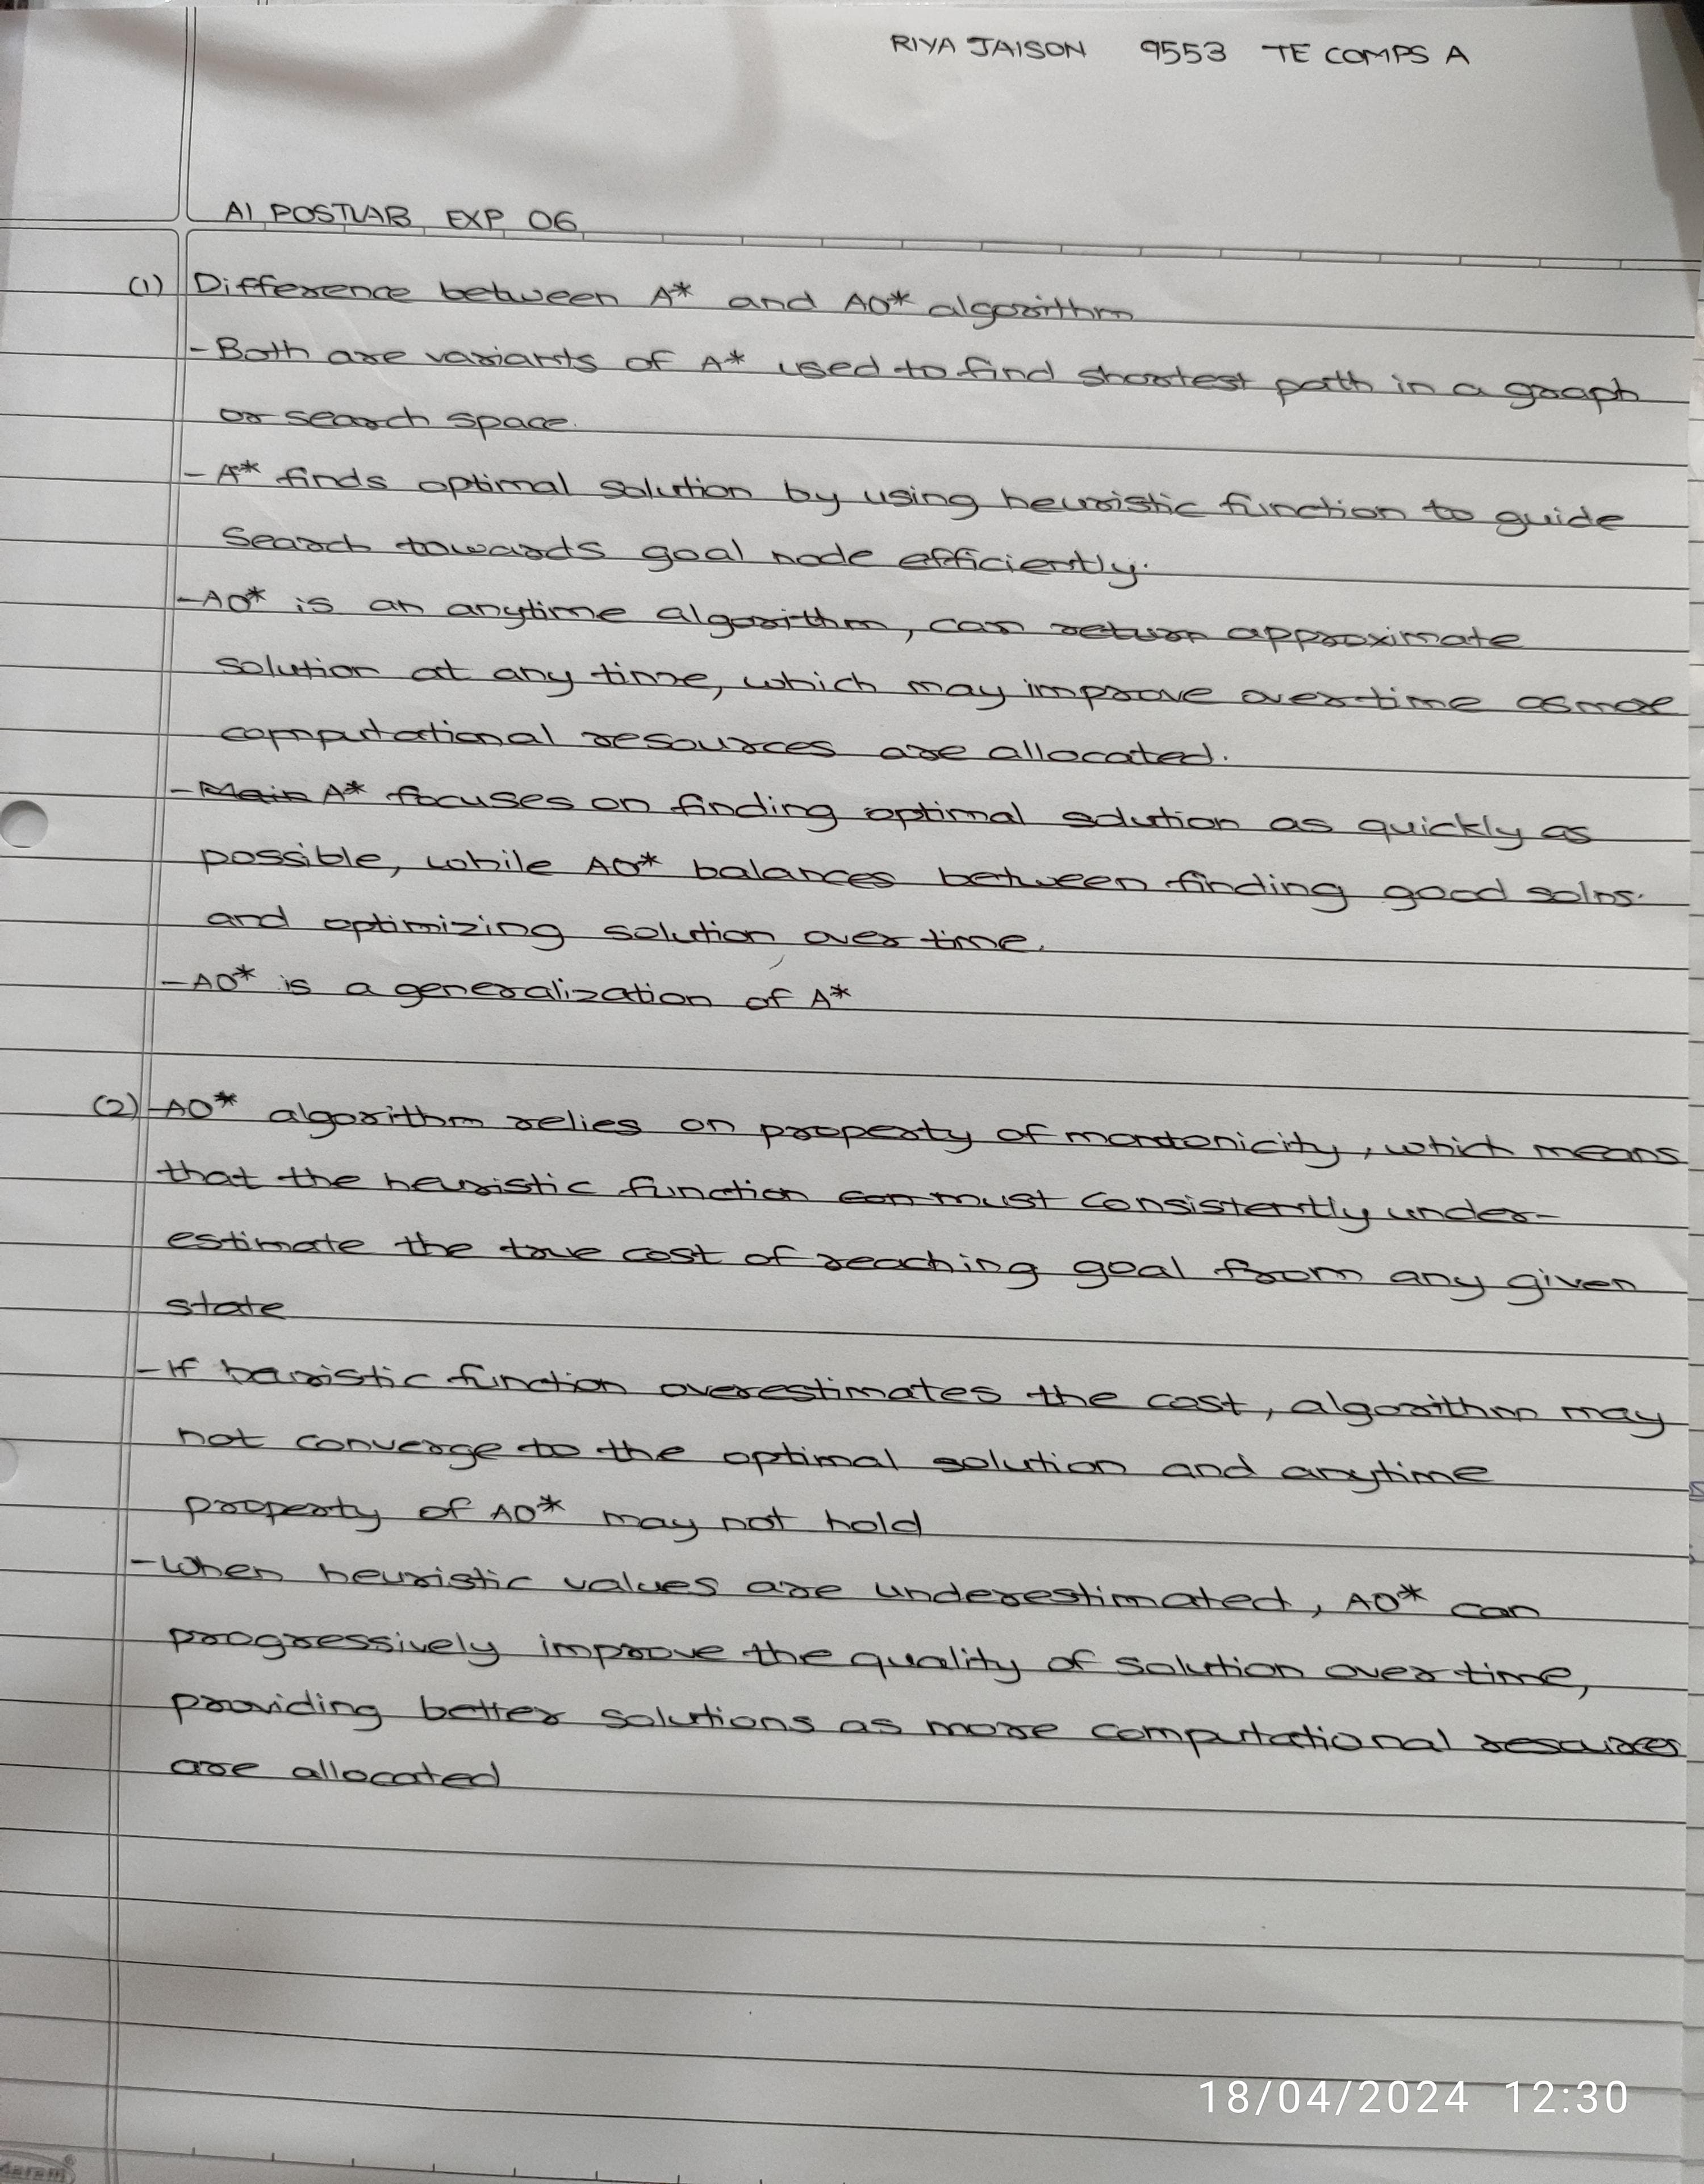 RIYA JAISON 9553 TE COMPS A
AI POSTLAB EXP 06
(1) Difference between A* and AO* algorithm
- Both are variants of A* used to find shortest path in a graph
or search space.
- A* finds optimal solution by using heuristic function to guide
search towards goal node efficiently.
- AO* is an anytime algorithm, can return approximate
solution at any time, which may improve over time as more
computational resources are allocated.
- Main A* focuses on finding optimal solution as quickly as
possible, while AO* balances between finding good solns.
and optimizing solution over time.
- AO* is a generalization of A*
(2) - AO* algorithm relies on property of monotonicity, which means
that the heuristic function can must consistently under-
estimate the true cost of reaching goal from any given
state
- If heuristic function overestimates the cost, algorithm may
not converge to the optimal solution and anytime
property of AO* may not hold
- When heuristic values are underestimated, AO* can
progressively improve the quality of solution over time,
providing better solutions as more computational resources
are allocated
18/04/2024 12:30